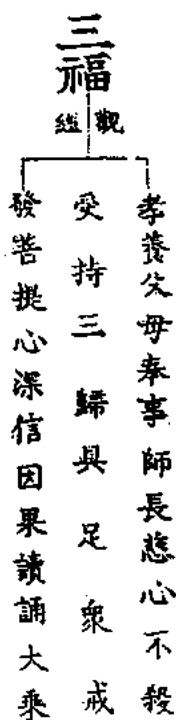 三福
觀經
孝養父母奉事師長慈心不殺
受持三歸具足衆戒
發菩提心深信因果讀誦大乘